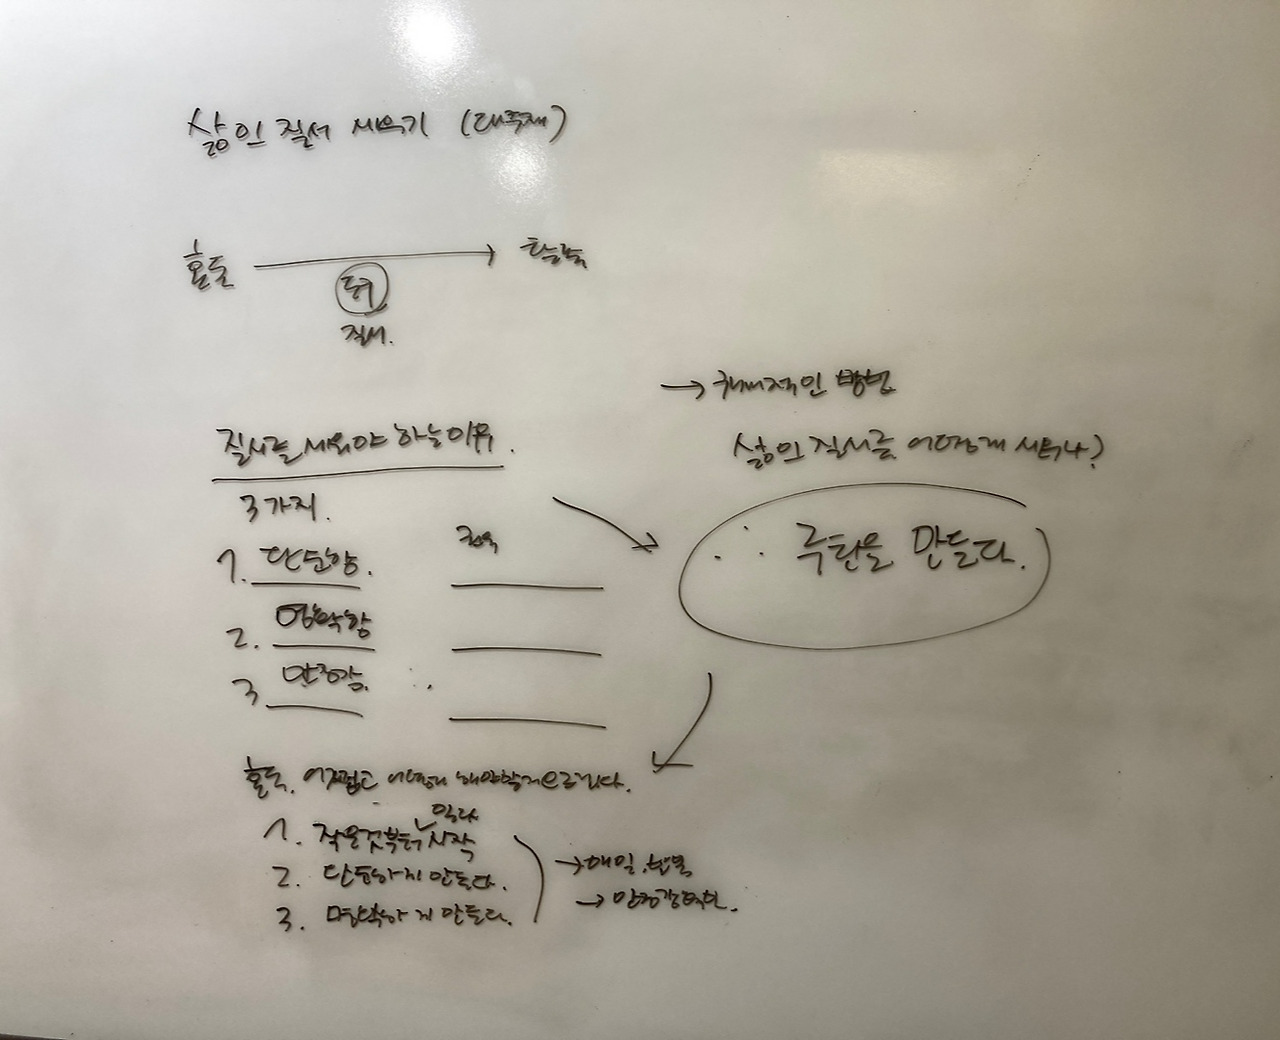 삶의 질서 세우기 (대주제)
혼돈
질서.
→ 구체적인 방법
질서를 세워야 하는 이유.
삶의 질서를 어떻게 세우나?
3가지.
1. 단순함.
∴ 루틴을 만들다.
2. 명확함
3 만족감.
혼돈. 어지럽고 어떻게 해야할지 모르겠다.
1. 작은것부터 시작
2. 단순하게 만든다.
→ 매일, 반복
3. 명확하게 만든다.